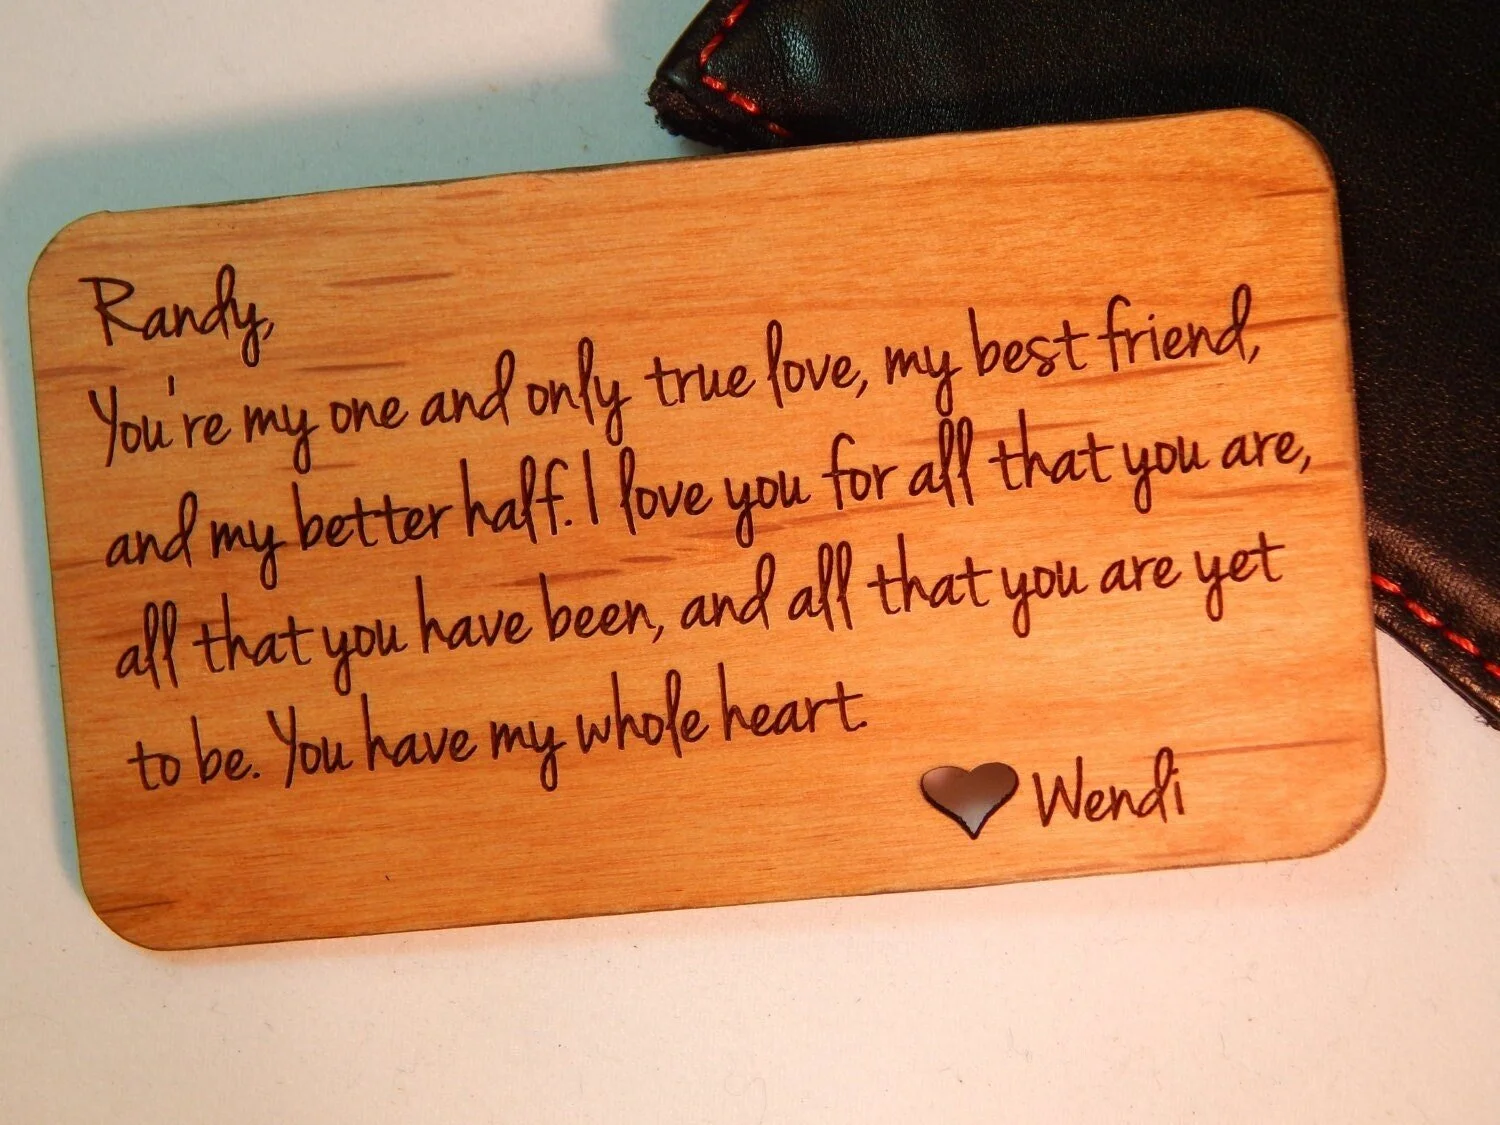 Randy,
You're my one and only true love, my best friend,
and my better half. I love you for all that you are,
all that you have been, and all that you are yet
to be. You have my whole heart.
Wendi